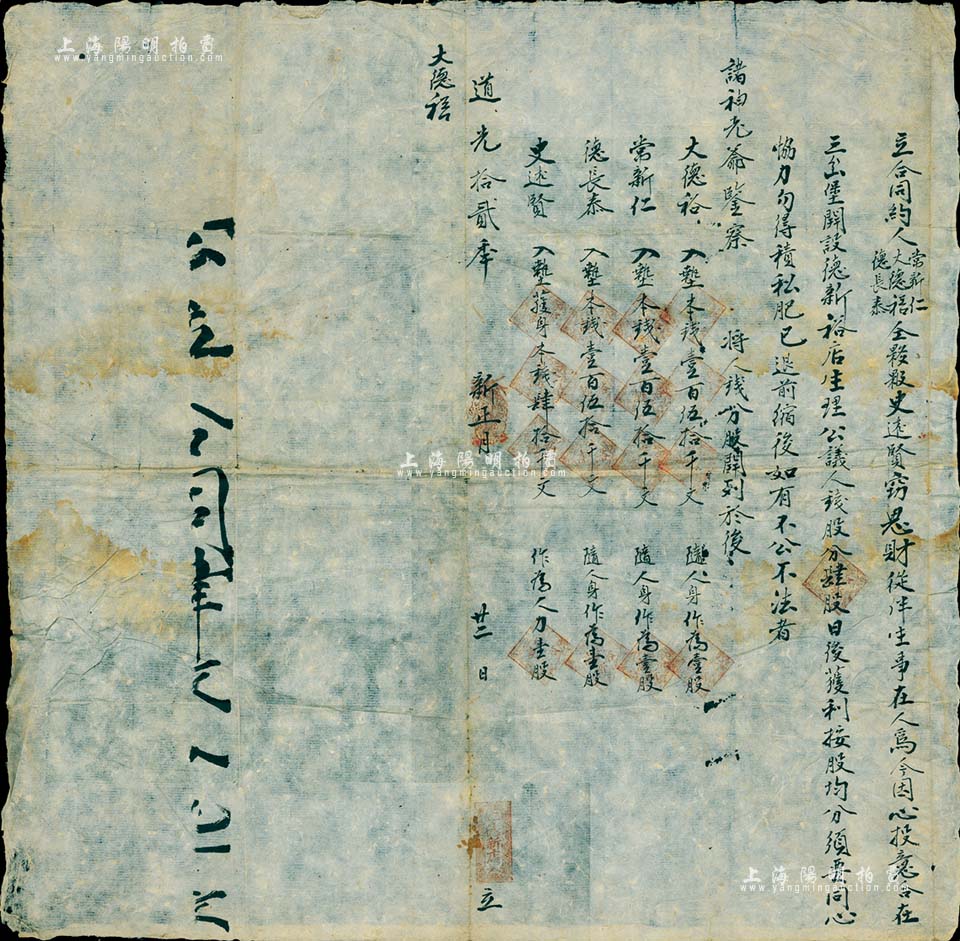 立合同約人常新仁大德裕德長泰仝夥夥史述賢窃思財從伴生事在人為今因心投意合在
三岔堡開設德新裕店生理公議人錢股分肆股日後獲利按股均分須要同心
恊力勿得積私肥已退前縮後如有不公不法者
諸神老爺鑒察 將人錢分股開列於後
大德裕 入墊本錢壹百伍拾千文 隨人身作為壹股
常新仁 入墊本錢壹百伍拾千文 隨人身作為壹股
德長泰 入墊本錢壹百伍拾千文 隨人身作為壹股
史述賢 入墊護身本錢肆拾千文 作為人力壹股
道光拾貳年 新正月 廿二日 立
大德裕
上海陽明拍賣
www.yangmingauction.com
上海陽明拍賣
www.yangmingauction.com
上海陽明拍賣
www.yangmingauction.com